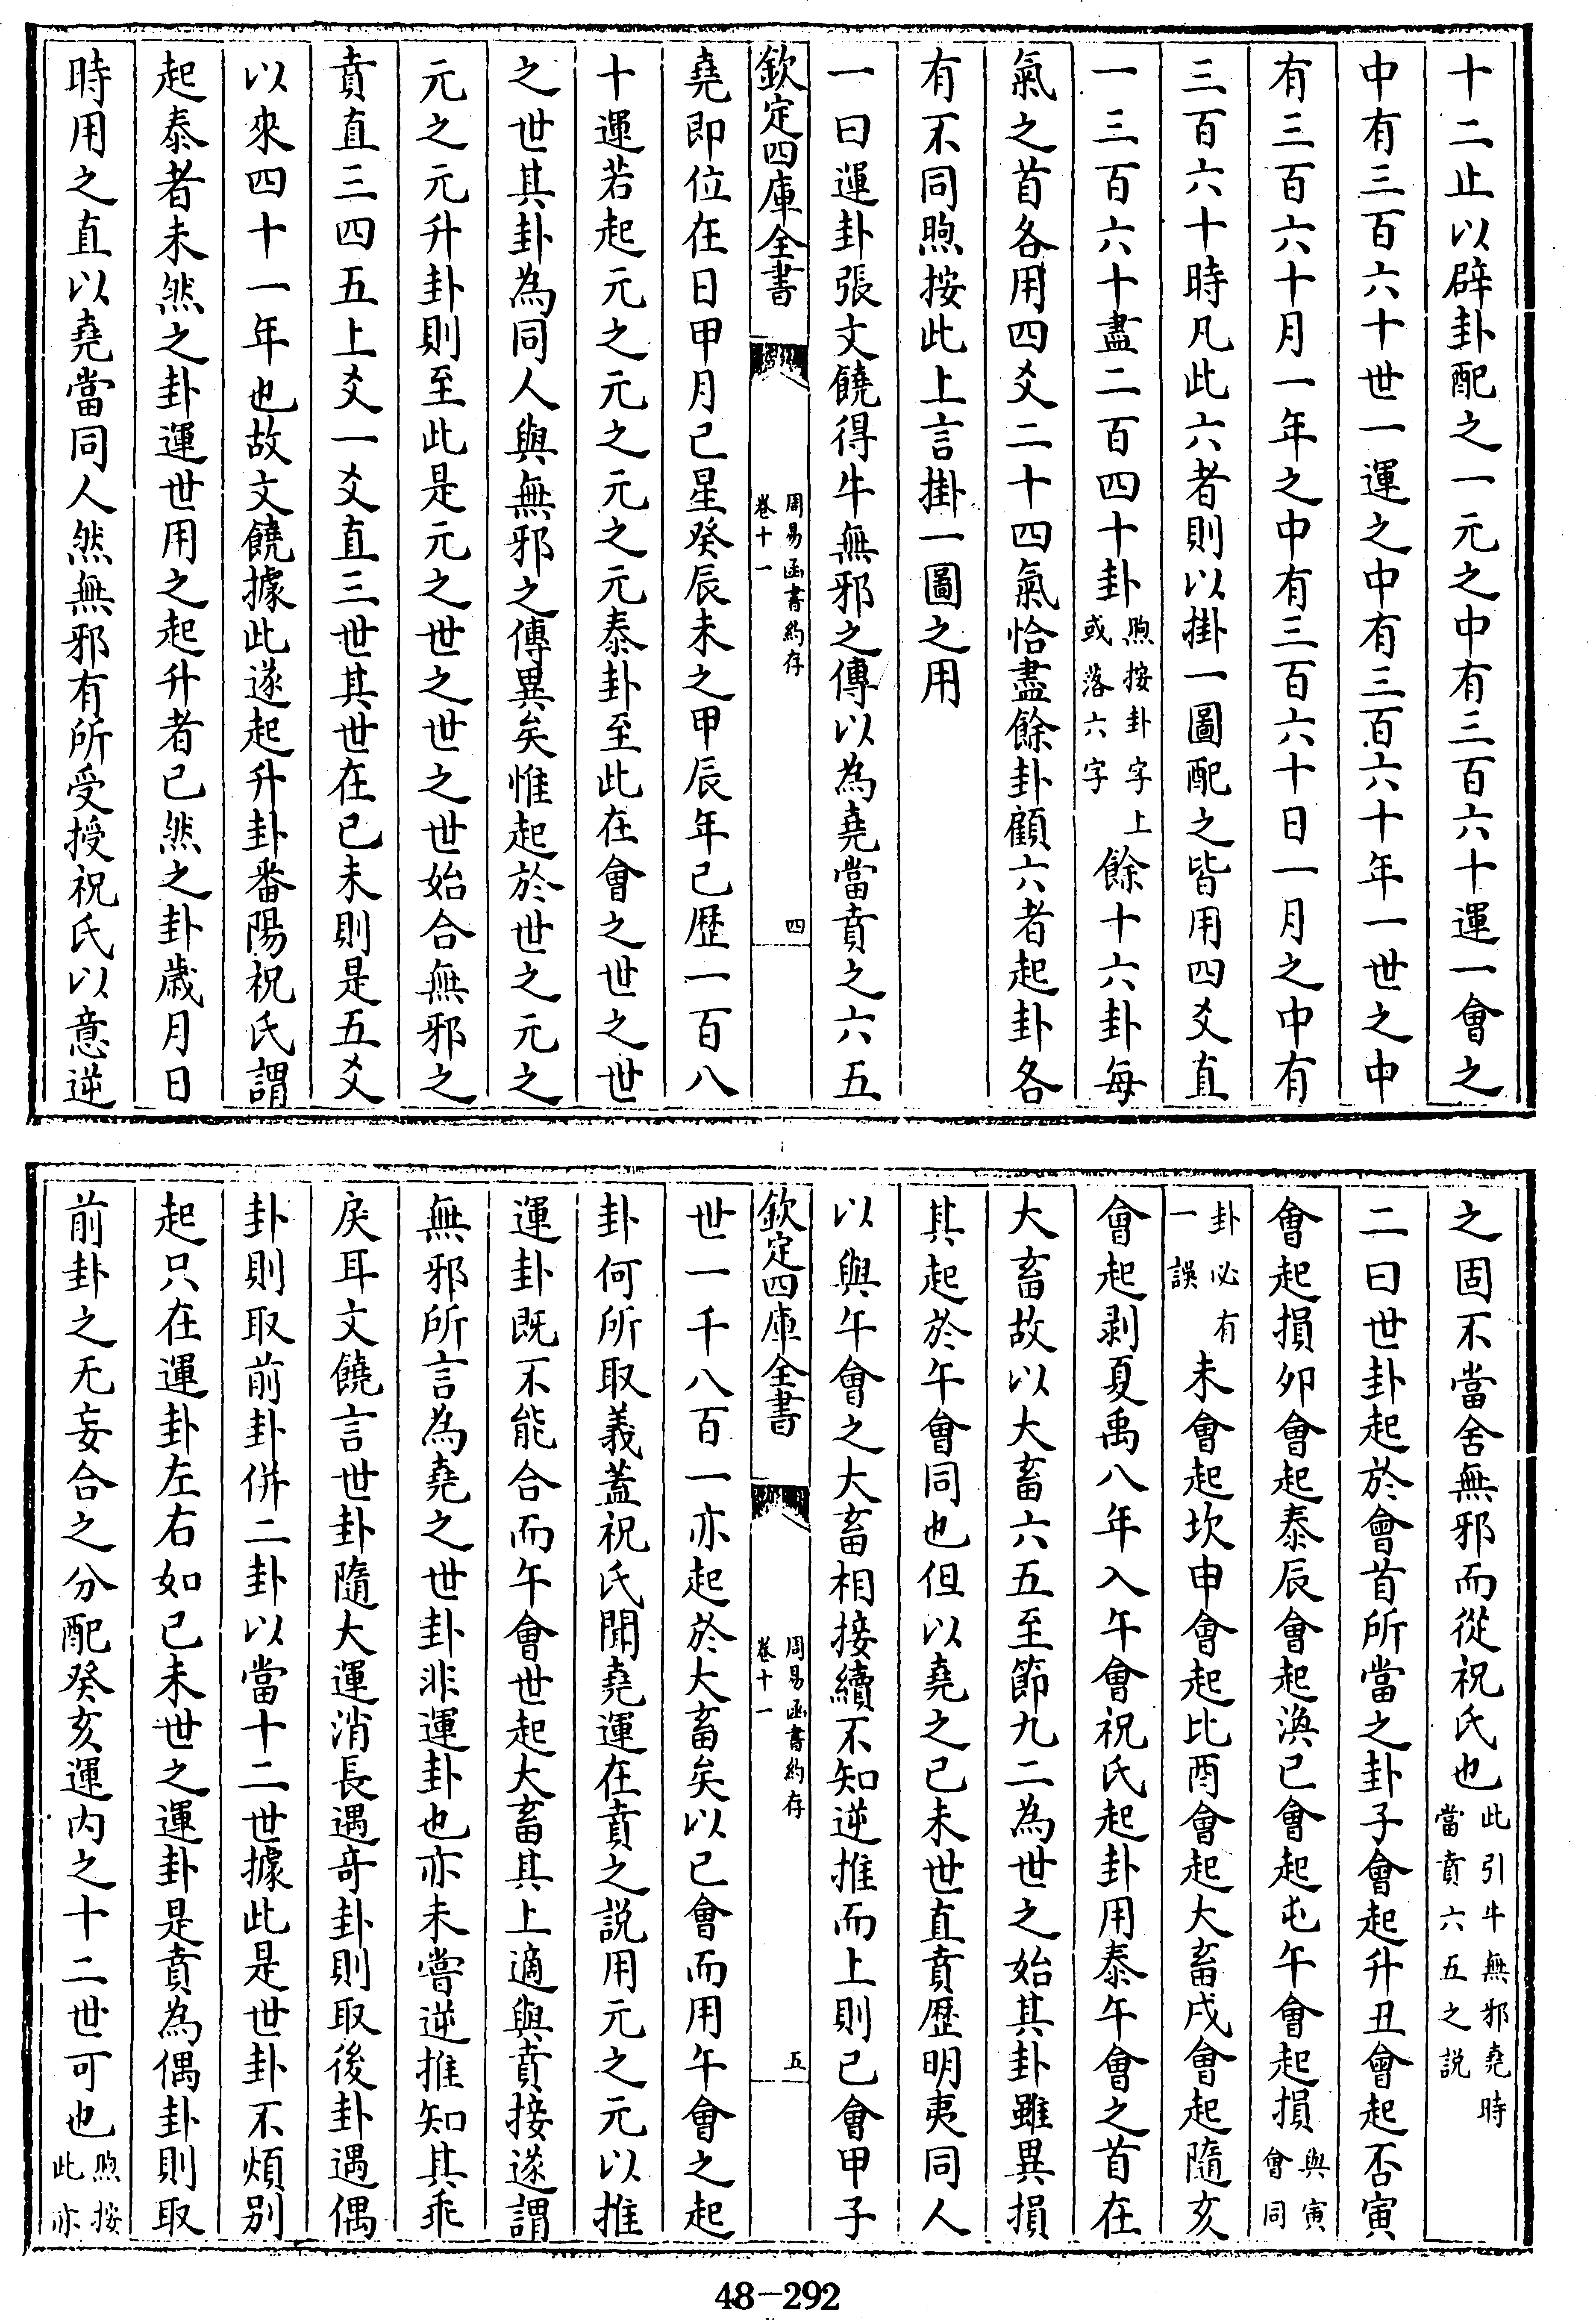 十二止以辟卦配之一元之中有三百六十運一會之
中有三百六十世一運之中有三百六十年一世之中
有三百六十月一年之中有三百六十日一月之中有
三百六十時凡此六者則以掛一圖配之皆用四爻直
一三百六十盡二百四十卦煦按卦字上或落六字餘十六卦每
氣之首各用四爻二十四氣恰盡餘卦顧六者起卦各
有不同煦按此上言掛一圖之用
一曰運卦張文饒得牛無邪之傳以為堯當賁之六五
欽定四庫全書
周易函書約存
卷十一
四
堯即位在日甲月巳星癸辰未之甲辰年已歷一百八
十運若起元之元之元之元泰卦至此在會之世之世
之世其卦為同人與無邪之傳異矣惟起於世之元之
元之元升卦則至此是元之世之世之世始合無邪之
賁直三四五上爻一爻直三世其世在己未則是五爻
以來四十一年也故文饒據此遂起升卦番陽祝氏謂
起泰者未然之卦運世用之起升者已然之卦歲月日
時用之直以堯當同人然無邪有所受授祝氏以意逆
之固不當舍無邪而從祝氏也此引牛無邪堯時當賁六五之說
二曰世卦起於會首所當之卦子會起升丑會起否寅
會起損卯會起泰辰會起渙巳會起屯午會起損與寅會同
卦必有一誤未會起坎申會起比酉會起大畜戌會起隨亥
會起剥夏禹八年入午會祝氏起卦用泰午會之首在
大畜故以大畜六五至節九二為世之始其卦雖異損
其起於午會同也但以堯之己未世直賁歷明夷同人
以與午會之大畜相接續不知逆推而上則巳會甲子
欽定四庫全書
周易函書約存
卷十一
五
世一千八百一亦起於大畜矣以巳會而用午會之起
卦何所取義蓋祝氏聞堯運在賁之說用元之元以推
運卦既不能合而午會世起大畜其上適與賁接遂謂
無邪所言為堯之世卦非運卦也亦未嘗逆推知其乖
戾耳文饒言世卦隨大運消長遇奇卦則取後卦遇偶
卦則取前卦併二卦以當十二世據此是世卦不煩別
起只在運卦左右如己未世之運卦是賁為偶卦則取
前卦之无妄合之分配癸亥運内之十二世可也煦按此亦
48-292